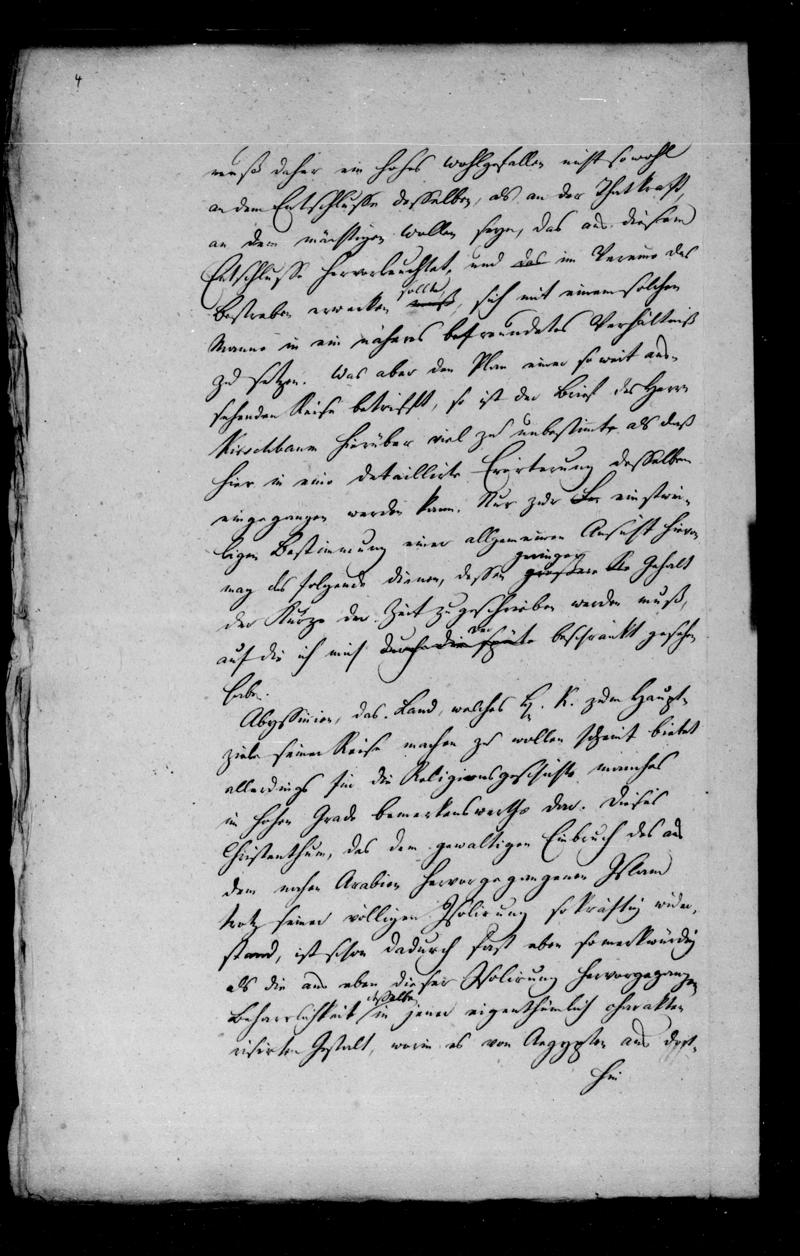 4
muß daher ein hohes Wohlgefallen nicht sowohl
an dem Entschlusse desselben, als an der Thatkraft,
an dem mächtigen Wollen seyn, das aus diesem
Entschlusse hervorleuchtet, und das im Vereine das
sollte
Bestreben erwecken muß, sich mit einem solchen
Manne in ein näheres befreundetes Verhältniß
zu setzen. Was aber den Plan einer so weit aus-
sehenden Reise betrifft, so ist der Brief des Herrn
Kirschbaum hierüber viel zu unbestimmt als daß
hier in eine detaillirte Erörterung desselben
eingegangen werden kann. Nur zur Be einstwei-
ligen Bestimmung einer allgemeinen Ansicht hievon
geringer
mag das folgende dienen, dessen Gehalt
der Kürze der Zeit zugeschrieben werden muß,
auf die ich mich durch die beschränkt gesehen
habe.
Abyssinien, das Land, welches H. K. zum Haupt-
ziele seiner Reise machen zu wollen scheint bietet
allerdings für die Religionsgeschichte manches
in hohen Grade bemerkenswerthe dar. Dieses
Christenthum, das dem gewaltigen Einbruch des aus
dem nahen Arabien hervorgegangenen Islam
trotz seiner völligen Isolirung so kräftig wider-
stand, ist schon dadurch fast eben so merkwürdig
als die aus eben dieser Isolirung hervorgegangene
desselben
Beharrlichkeit in jener eigenthümlich charakte-
risirten Gestalt, worin es von Aegypten aus
hin